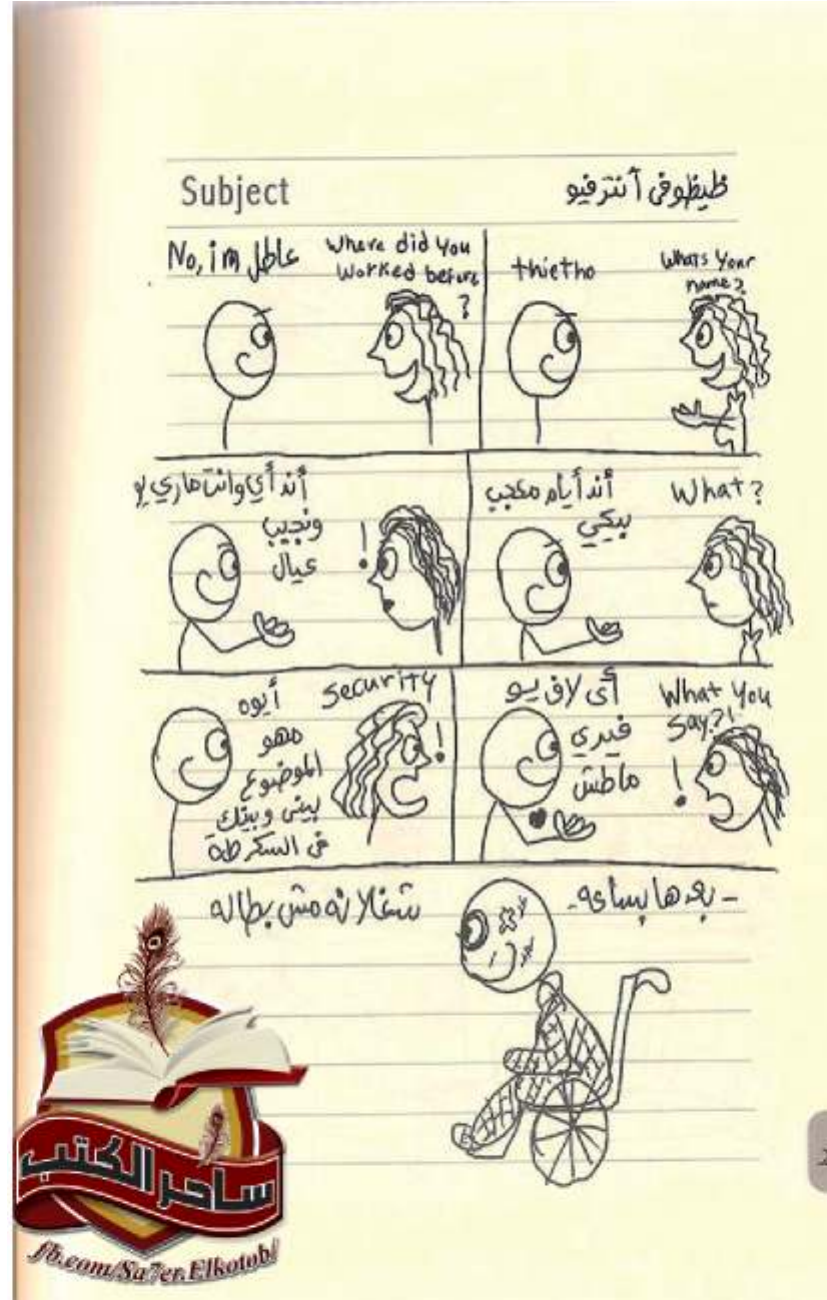 Subject
ظيظو فى أنترفيو
Whats Your
name?
thietho
Where did You
Worked before
?
No, im عاطل
What?
أند أيام معجب
بيكي
!
أند أي وانت ماري يو
ونجيب
عيال
What You
Say?!
!
أى لاف يو
فيري
ماطش
security
!
أيوه
مهو
الموضوع
بينى وبينك
فى السكرطة
- بعدها بساعه -
شغلانه مش بطاله
ساحر الكتب
fb.com/Sa7er.Elkotob/